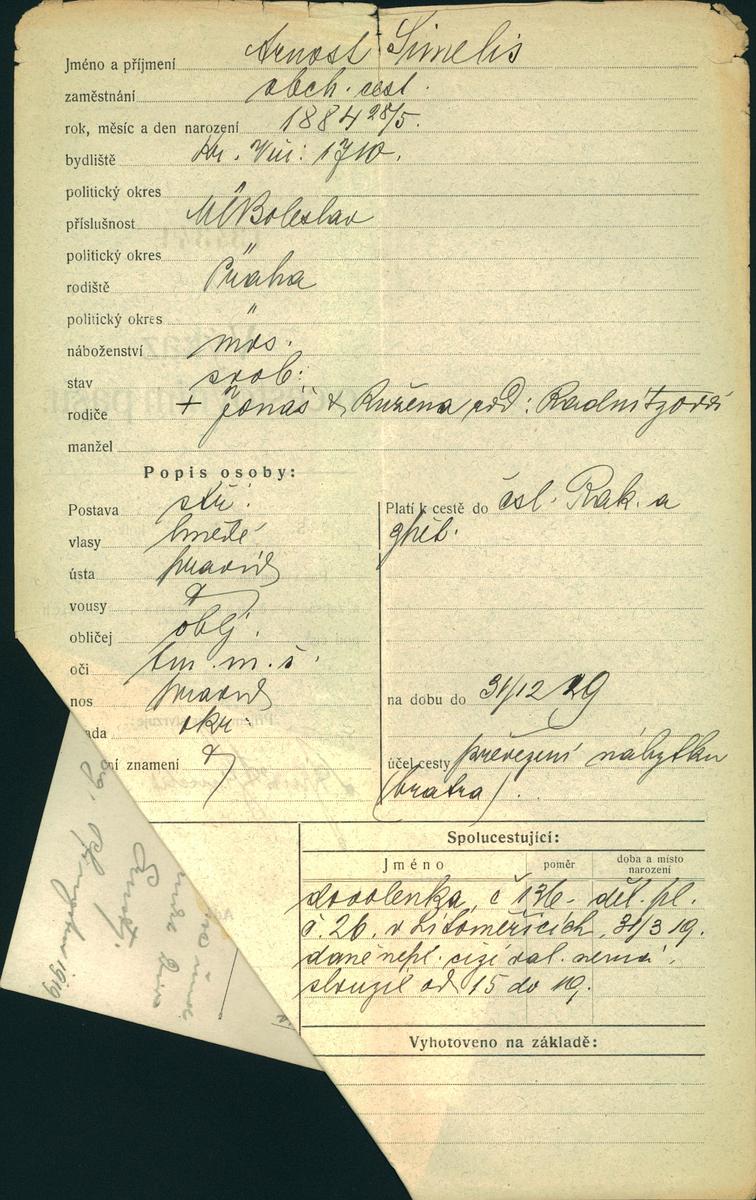 Jméno a příjmení Arnošt Simelis
zaměstnání obch. cest.
rok, měsíc a den narození 1884 28/5.
bydliště Kr. Vin: 1710.
politický okres
příslušnost Ml Boleslav
politický okres "
rodiště Praha
politický okres "
náboženství mos.
stav svob:
rodiče + Jonáš & Ružena rod:
manžel
Popis osoby:
Postava stř.
vlasy hnědé
ústa pravid
vousy
obličej oblý.
oči tm. m. š.
nos pravid
ada okr.
ční znamení
Platí k cestě do čsl. Rak. a
na dobu do 31/12 19
účel cesty převezení nábytku
(bratra).
Spolucestující:
Jméno poměr doba a místo narození
dovolenka č 136. děl. pl.
č. 26. v Litoměřicích, 31/3 19.
daně nepl. cizí val. nemá,
sloužil od 15 do 19.
Vyhotoveno na základě:
1919